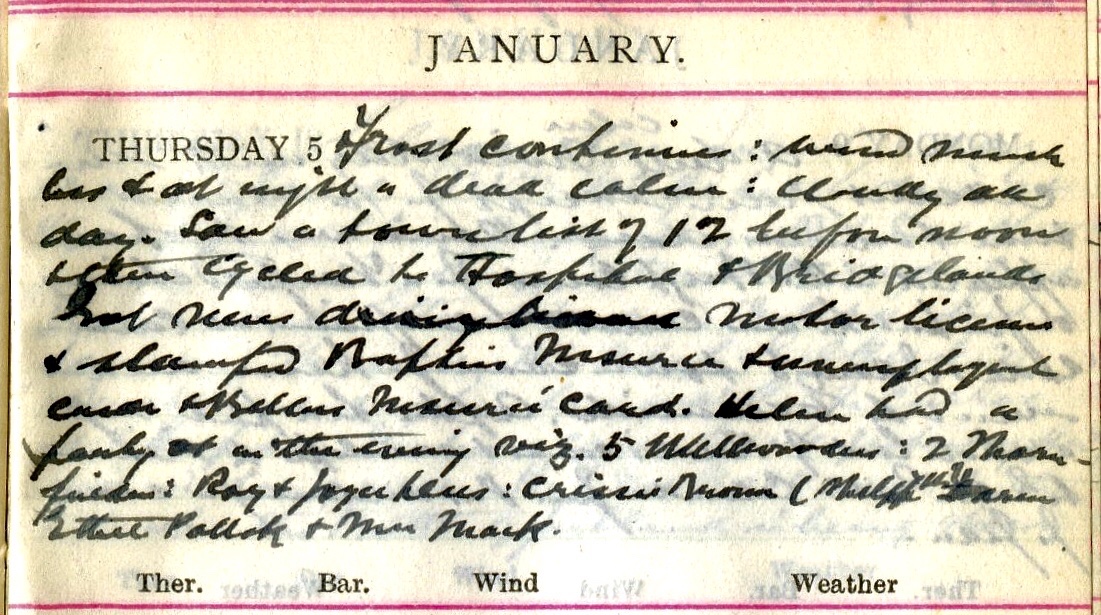 JANUARY.
THURSDAY 5 Frost continues : wind much
less & at night a dead calm : Cloudy all
day. Saw a town list of 12 before noon
& then cycled to Hospital & Bridgelands
Got new driving license motor license
& stamped Insurance & unemployment
& Insurance Card. Helen had a
party in the evening viz. 5 Wellwoodens : 2 Thorn-
fieldens : Roy & Joyce : Crissie Brown (
Ethel Pollok & Mrs Mack.
Ther. Bar. Wind Weather